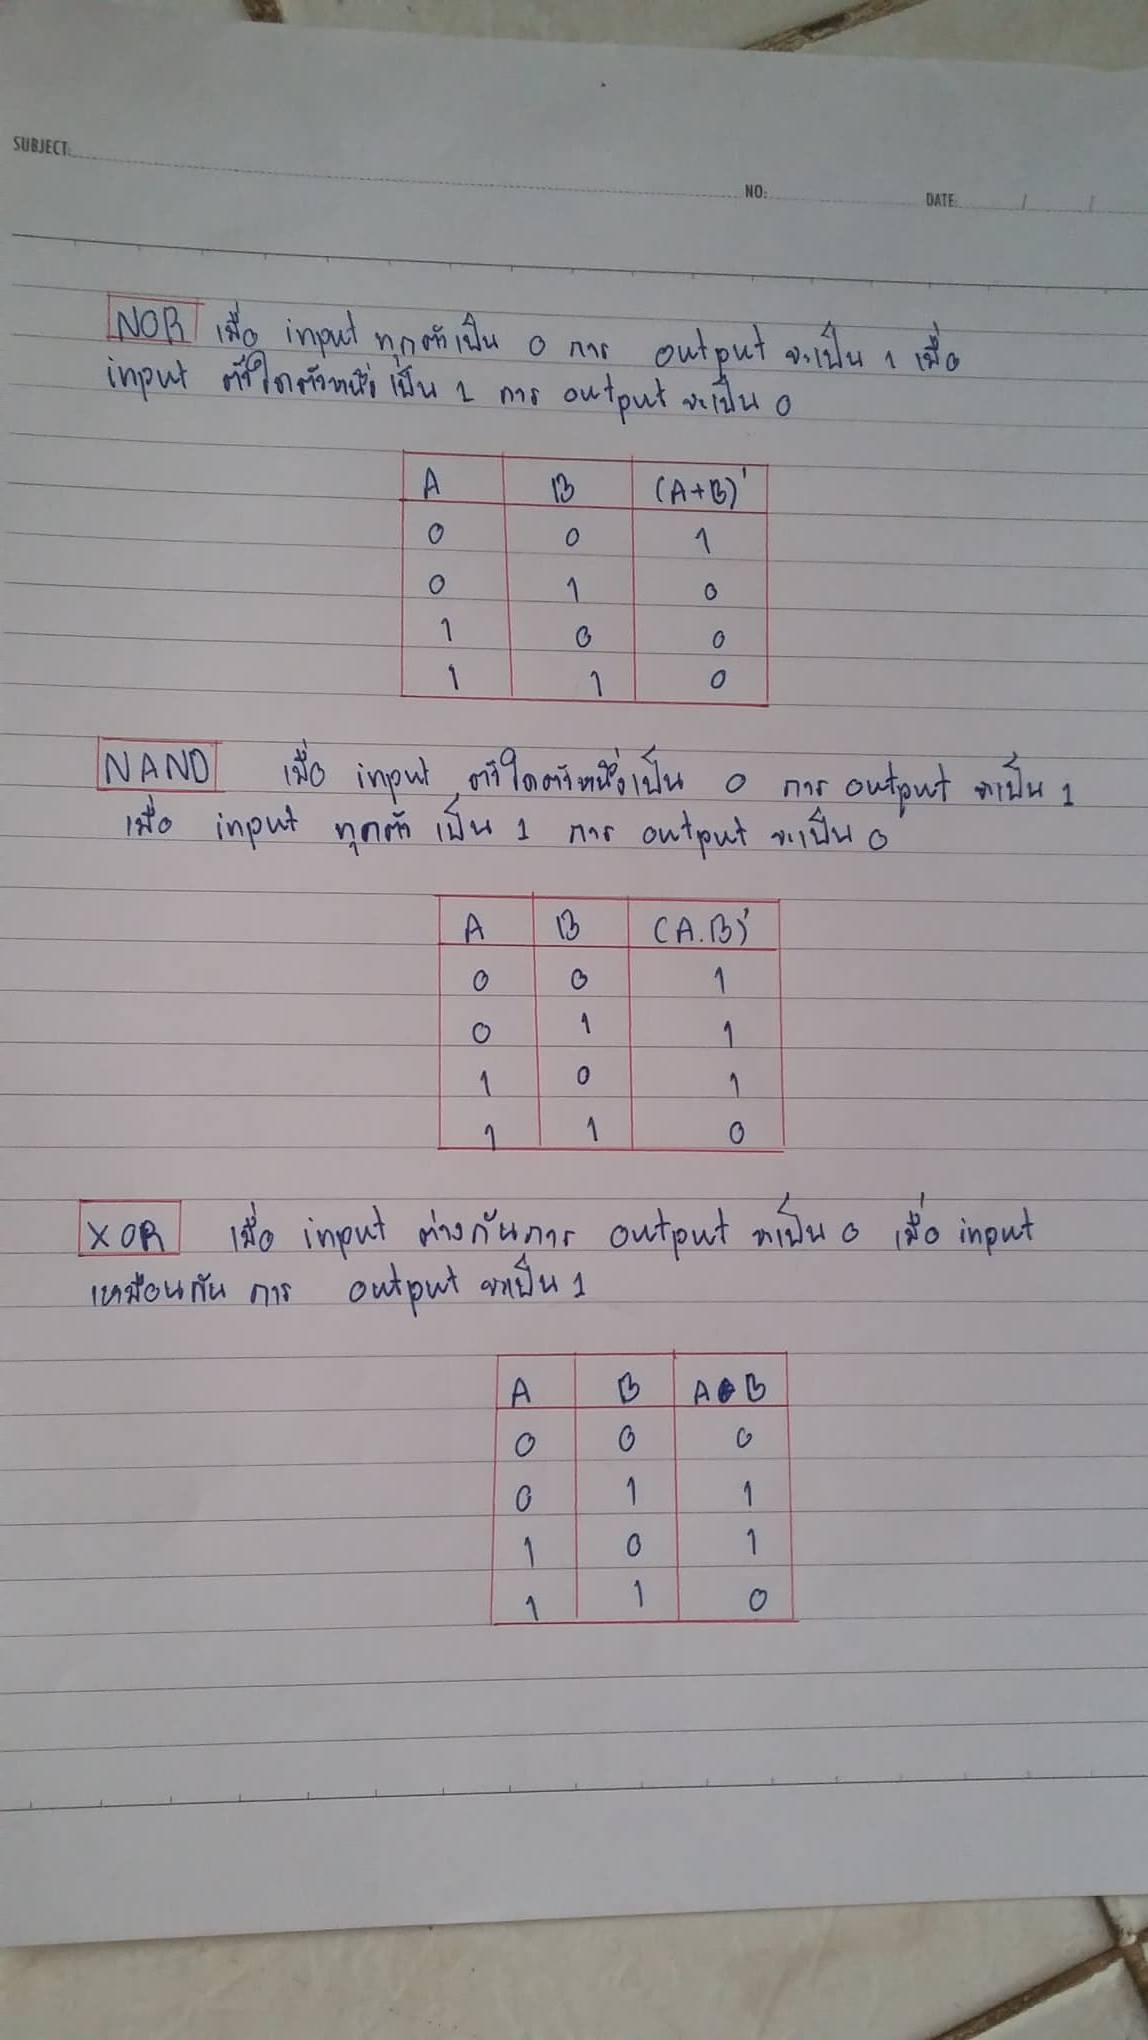 SUBJECT:
NO:
DATE: / /
NOR เมื่อ input ทุกตัวเป็น 0 การ output จะเป็น 1 เมื่อ
input ตัวใดตัวหนึ่งเป็น 1 การ output จะเป็น 0
A B (A+B)'
0 0 1
0 1 0
1 0 0
1 1 0
NAND เมื่อ input ตัวใดตัวหนึ่งเป็น 0 การ output จะเป็น 1
เมื่อ input ทุกตัว เป็น 1 การ output จะเป็น 0
A B (A.B)'
0 0 1
0 1 1
1 0 1
1 1 0
XOR เมื่อ input ต่างกันการ output จะเป็น 0 เมื่อ input
เหมือนกัน การ output จะเป็น 1
A B A⊕B
0 0 0
0 1 1
1 0 1
1 1 0